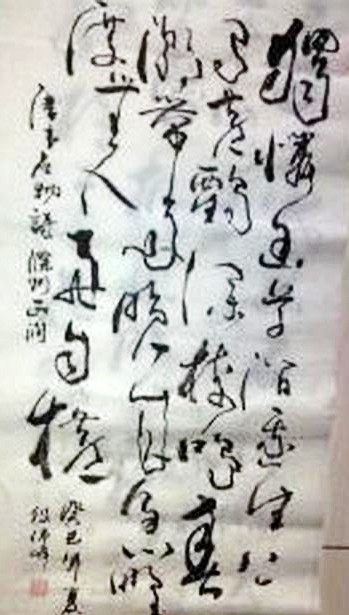 獨憐幽草澗邊生上
有黄鸝深樹鳴春
潮帶雨晚來急野
渡無人舟自橫
唐韋应物詩滁州西澗
癸巳仲夏